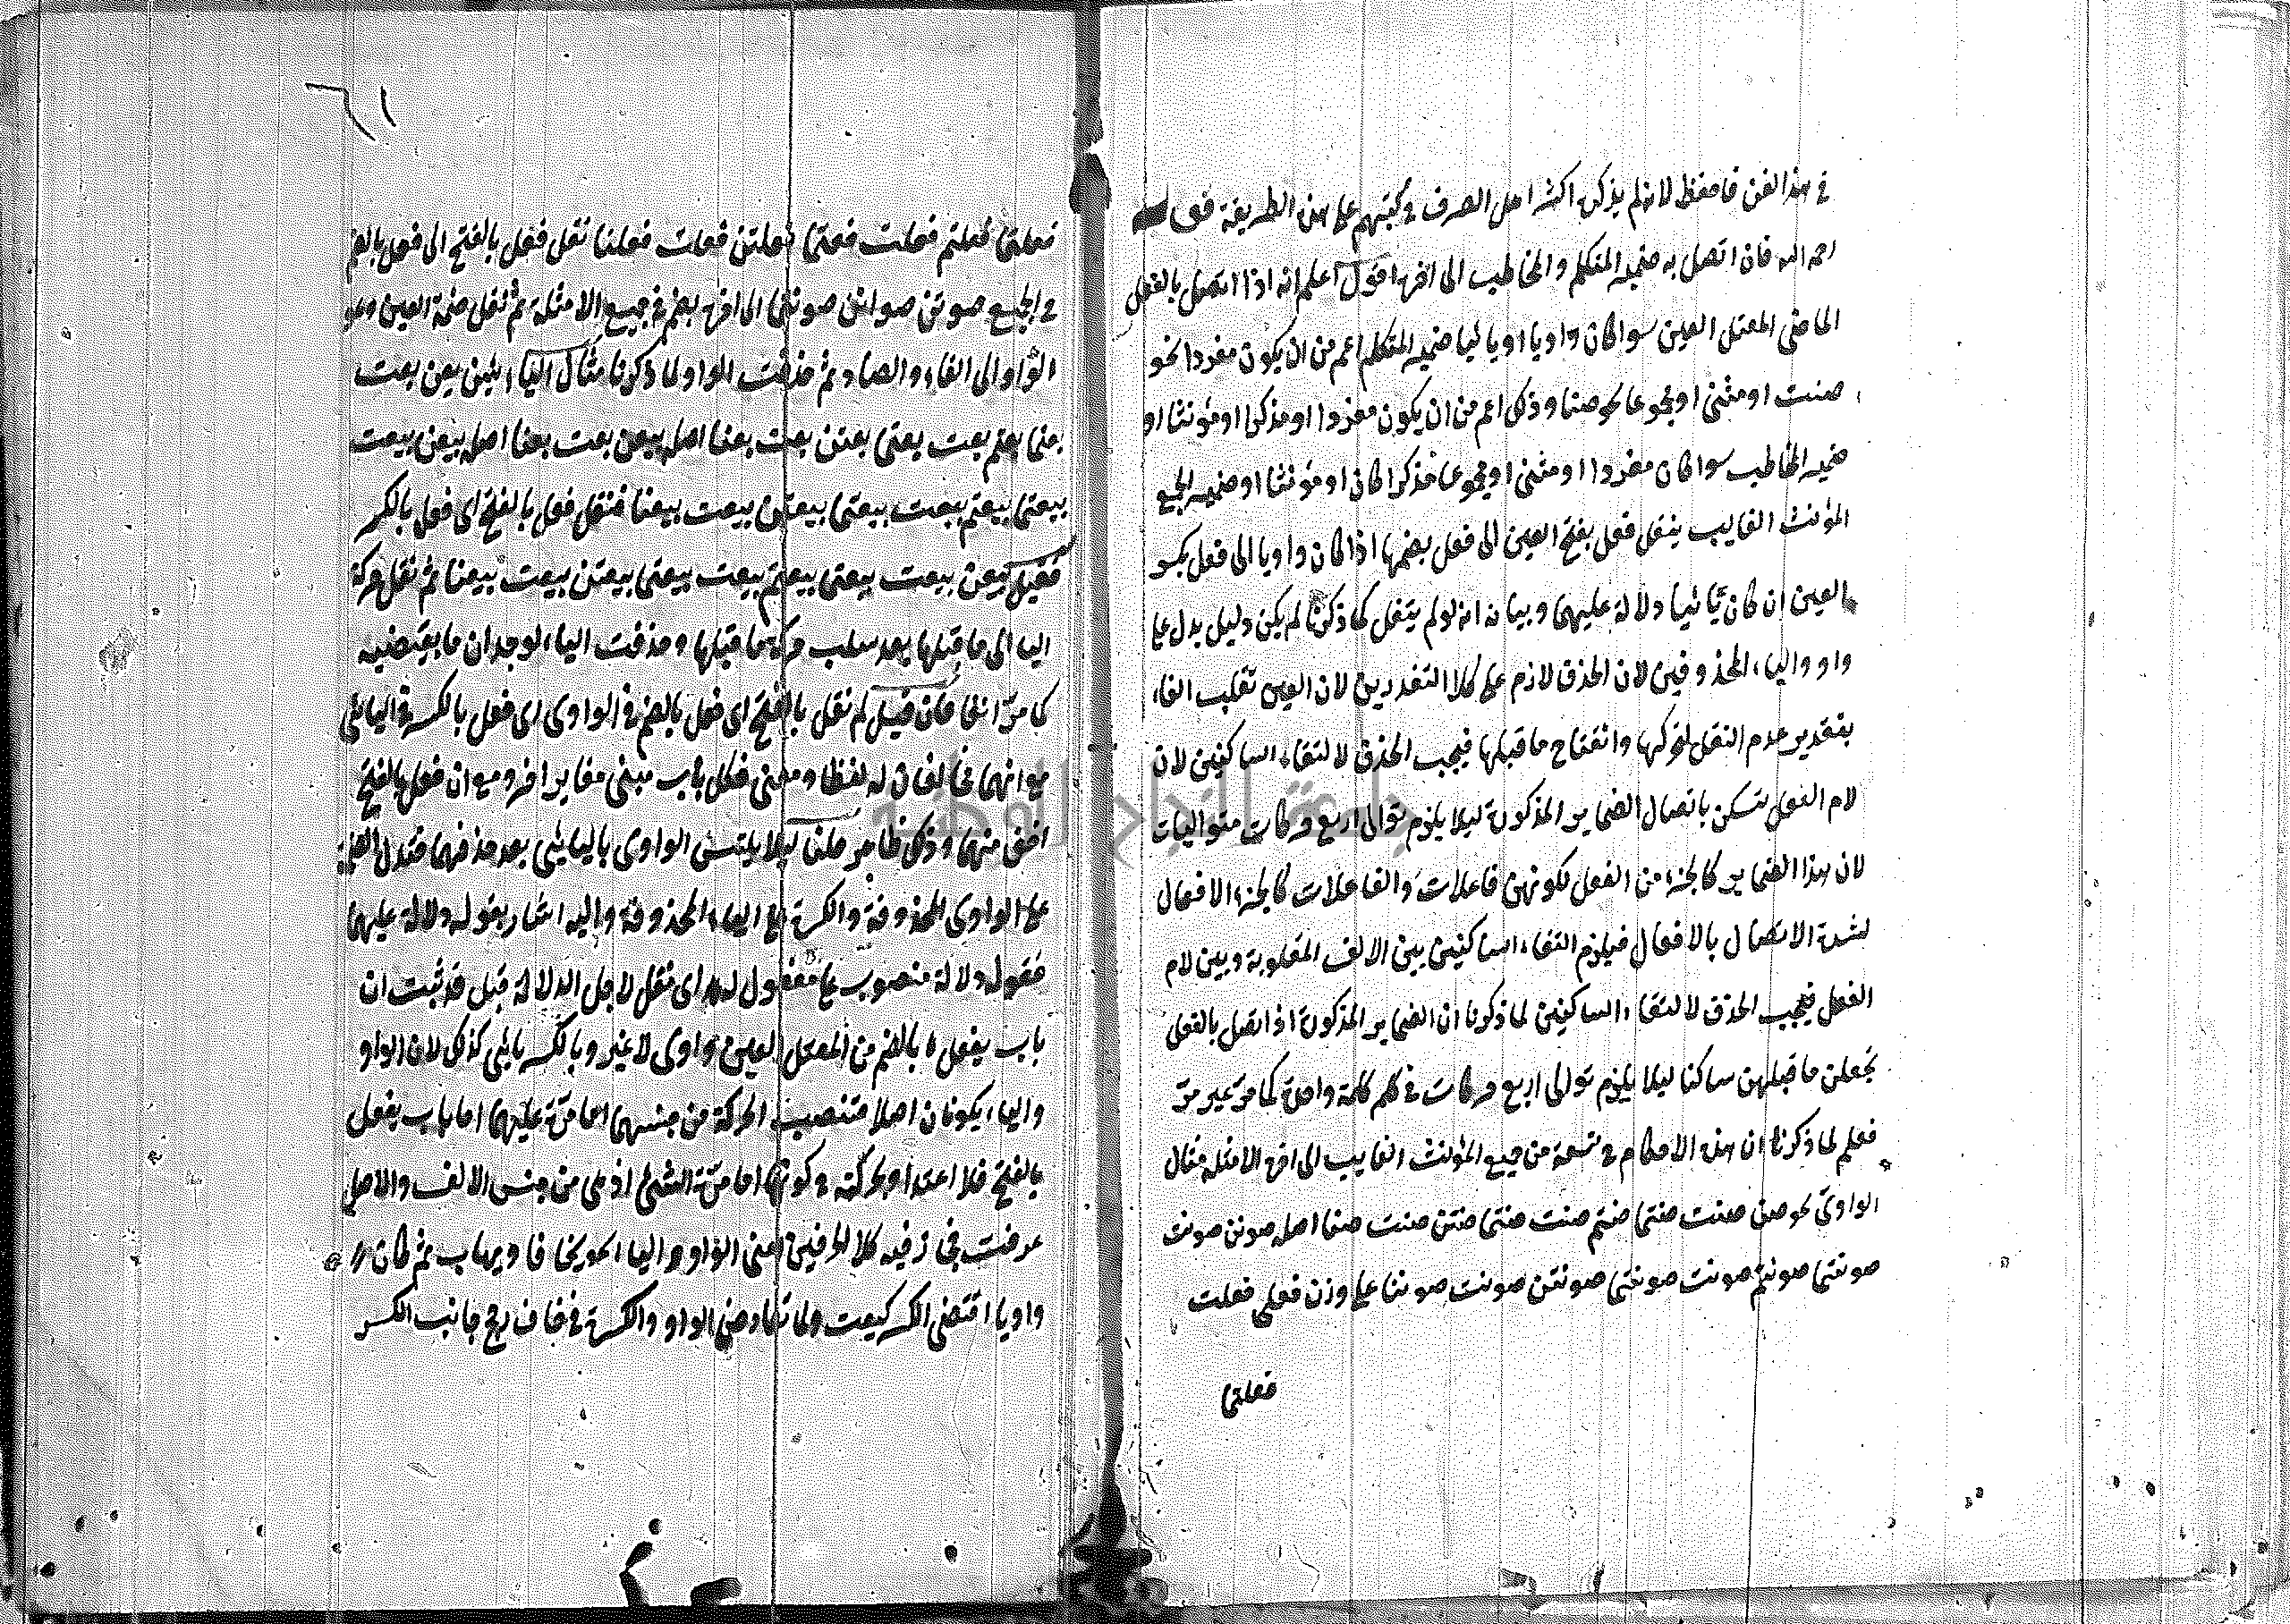 في هذا الفن فاحفظ لانه لم يذكره اكثر اهل الصرف في كتبهم على هذه الطريقة قوله
رحمه الله فان اتصل به ضمير المتكلم والمخاطب الى اخره اقول اعلم انه اذا اتصل بالفعل
الماضى المعتل العين سوا كان واويا او يائيا ضمير المتكلم اعم من ان يكون مفردا نحو
صنت او مثنى او مجموعا نحو صنا وذلك اعم من ان يكون مفردا او مذكرا او مؤنثا او
ضمير المخاطب سوا كان مفردا او مثنى او مجموعا مذكرا كان او مؤنثا او ضمير الجمع
المؤنث الغايب ينقل فعل بفتح العين الى فعل بضمها اذا كان واويا الى فعل بكسر
العين ان كان يائيا دلالة عليهما وبيانه انه لو لم ينقل كما ذكرنا لم يكن دليل يدل على
واو واليا، المحذوفين لان الحذف لازم على كلا التقديرين لان العين تقلب الفا،
بتقدير عدم النقل لتحركها وانفتاح ما قبلها فيجب الحذف لالتقاء الساكنين لان
لام الفعل تسكن باتصال الضماير المذكورة ليلا يلزم توالى اربع حركات متواليات
لان هذا الضماير كالجزء من الفعل لكونهن فاعلات والفاعلات كالجزء الافعال
لشدة الاتصال بالافعال فيلزم التقاء الساكنين بين الالف المقلوبة وبين لام
الفعل فيجب الحذف لالتقاء الساكنين لما ذكرنا ان الضماير المذكورة اذا اتصل بالفعل
تجعلن ما قبلهن ساكنا ليلا يلزم توالى اربع حركات في كلمة واحدة كما مر غير مر
فعلم لما ذكرنا ان هذه الاحكام في تسعة من جمع المؤنث الغايب الى اخر الامثله مثال
الواوى نحو صن صنت صنتما صنتم صنت صنتما صنتن صنت صنا اصله صونن صونت
صونتما صونتم صونت صونتما صونتن صونت صوننا على وزن فعلن فعلت
فعلتما
فعلتما فعلتم فعلت فعلتما فعلتن فعلت فعلنا نقل فعل بالفتح الى فعل بالضم
في الجميع صونن صونت صونتما الى اخره بضم في جميع الامثلة ثم نقل ضمة العين وهو
الواو الى الفاء والصاد ثم حذفت الواو لما ذكرنا مثال اليا، بعن بعت
بعتما بعتم بعت بعتما بعتن بعت بعنا اصله بيعن بيعت
بيعتما بيعتم بيعت بيعتما بيعتن بيعت بيعنا فنقل فعل بالفتح اى فعل بالكسر
فقيل بيعن بيعت بيعتما بيعتم بيعت بيعتما بيعتن بيعت بيعنا ثم نقل حركة
اليا الى ما قبلها بعد سلب حركة ما قبلها وحذفت اليا، لوجدان ما يقتضيه
كما مر انفا فان قيل لم نقل بالفتح اى فعل بالضم في الواوى اى فعل بالكسرة في اليائى
مع انهما مخالفان له لفظا ومعنى فكل باب مبنى مغاير اخر ومع ان فعل بالفتح
اخف منهما وذلك ظاهر قلنا ليلا يلتبس الواوى باليائى بعد حذفهما فتدل الضمة
على الواوى المحذوفة والكسرة على اليا، المحذوفة واليه اشار بقوله دلالة عليهما
فقوله دلالة منصوب على مفعول له اى نقل لاجل الدلالة قيل قد ثبت ان
باب يفعل بالضم من المعتل العين واوى لا غير وبالكسر يائى كذلك لان الواو
واليا، يكونان اصلا فتنصب الحركة من جنسهما امارة عليهما اما باب يفعل
بالفتح فلا اعتداد بحركته في كونها امارة الشئ اذ هى من جنس الالف والاصل
عرفت فجاز فيه كلا الحرفين اعنى الواو واليا، نحو يخاف ويهاب ثم كان
واويا اقتضى الكسر كبعت ولما تعارض الواو والكسرة في خاف رجح جانب الكسر